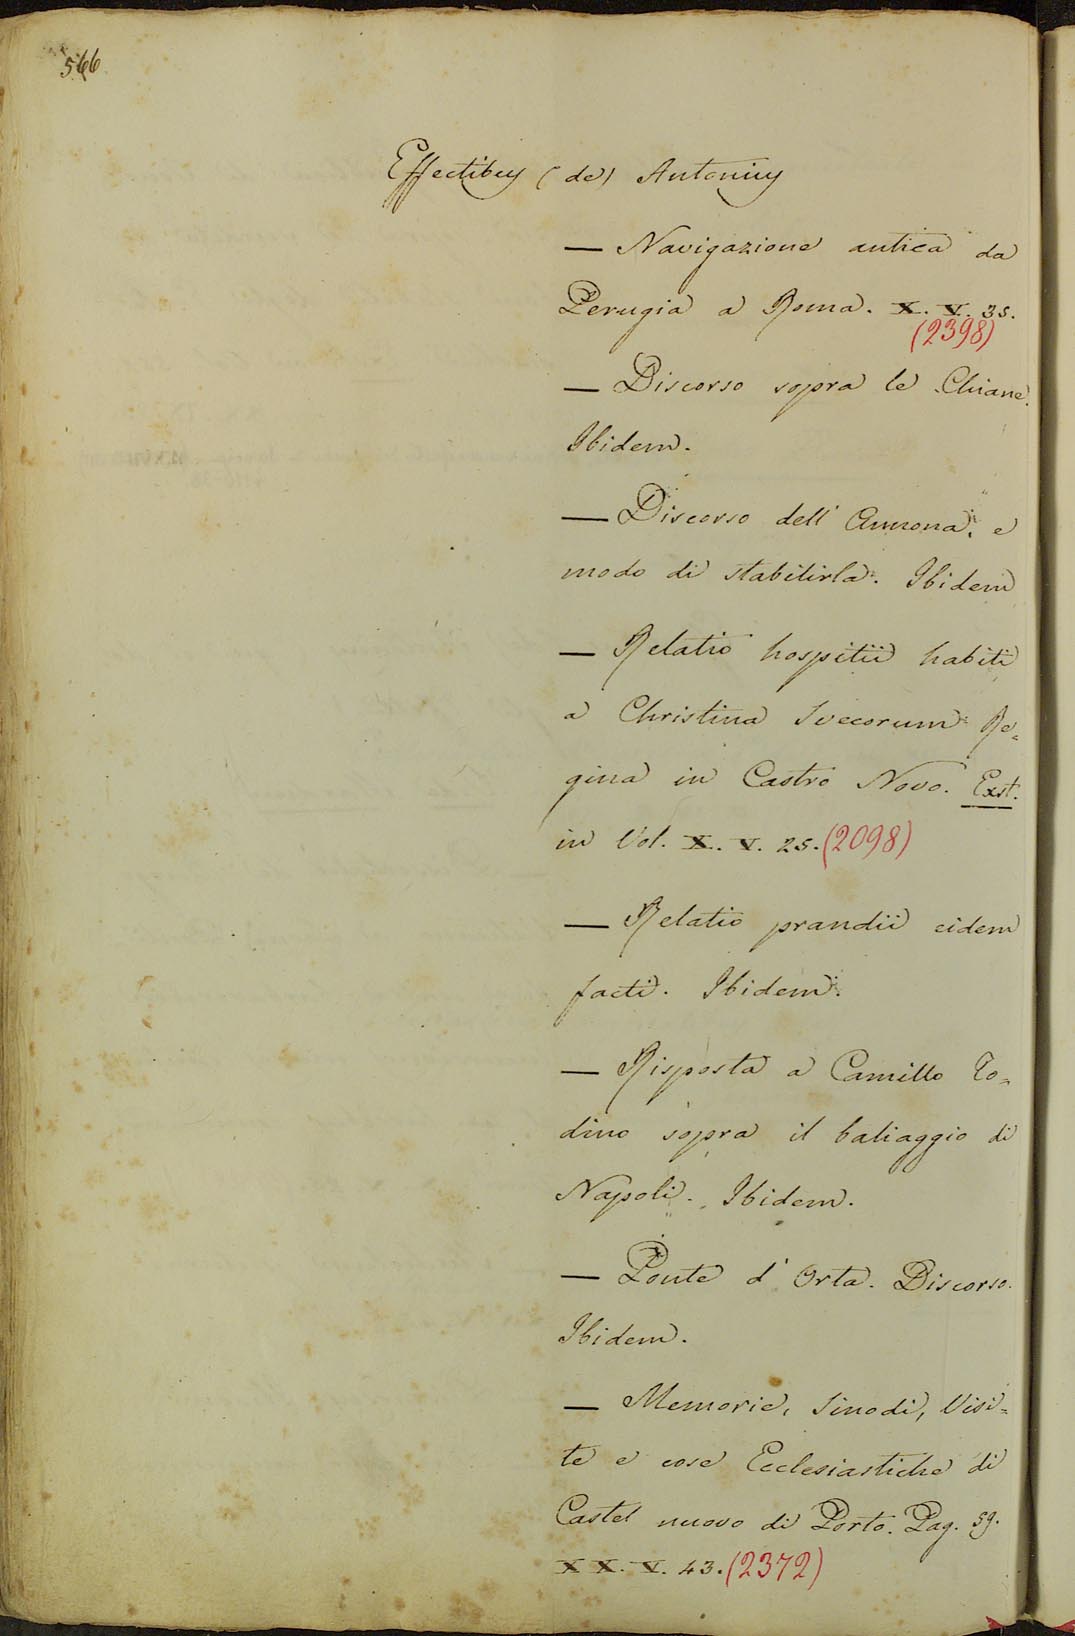 566
Effectibus (de) Antonius
— Navigazione antica da
Perugia a Roma. X. V. 35.
(2398)
— Discorso sopra le Chiane.
Ibidem.
— Discorso dell' Annona, e
modo di stabilirla. Ibidem
— Relatio hospitii habiti
a Christina Svecorum Re=
gina in Castro Novo. Exst.
in Vol. X. V. 25. (2098)
— Relatio prandii eidem
facti. Ibidem.
— Risposta a Camillo To=
dino sopra il baliaggio di
Napoli. Ibidem.
— Ponte d' Orta. Discorso.
Ibidem.
— Memorie, Sinodi, Visi=
te e cose Ecclesiastiche di
Castel nuovo di Porto. Pag. 59.
XX. V. 43. (2372)